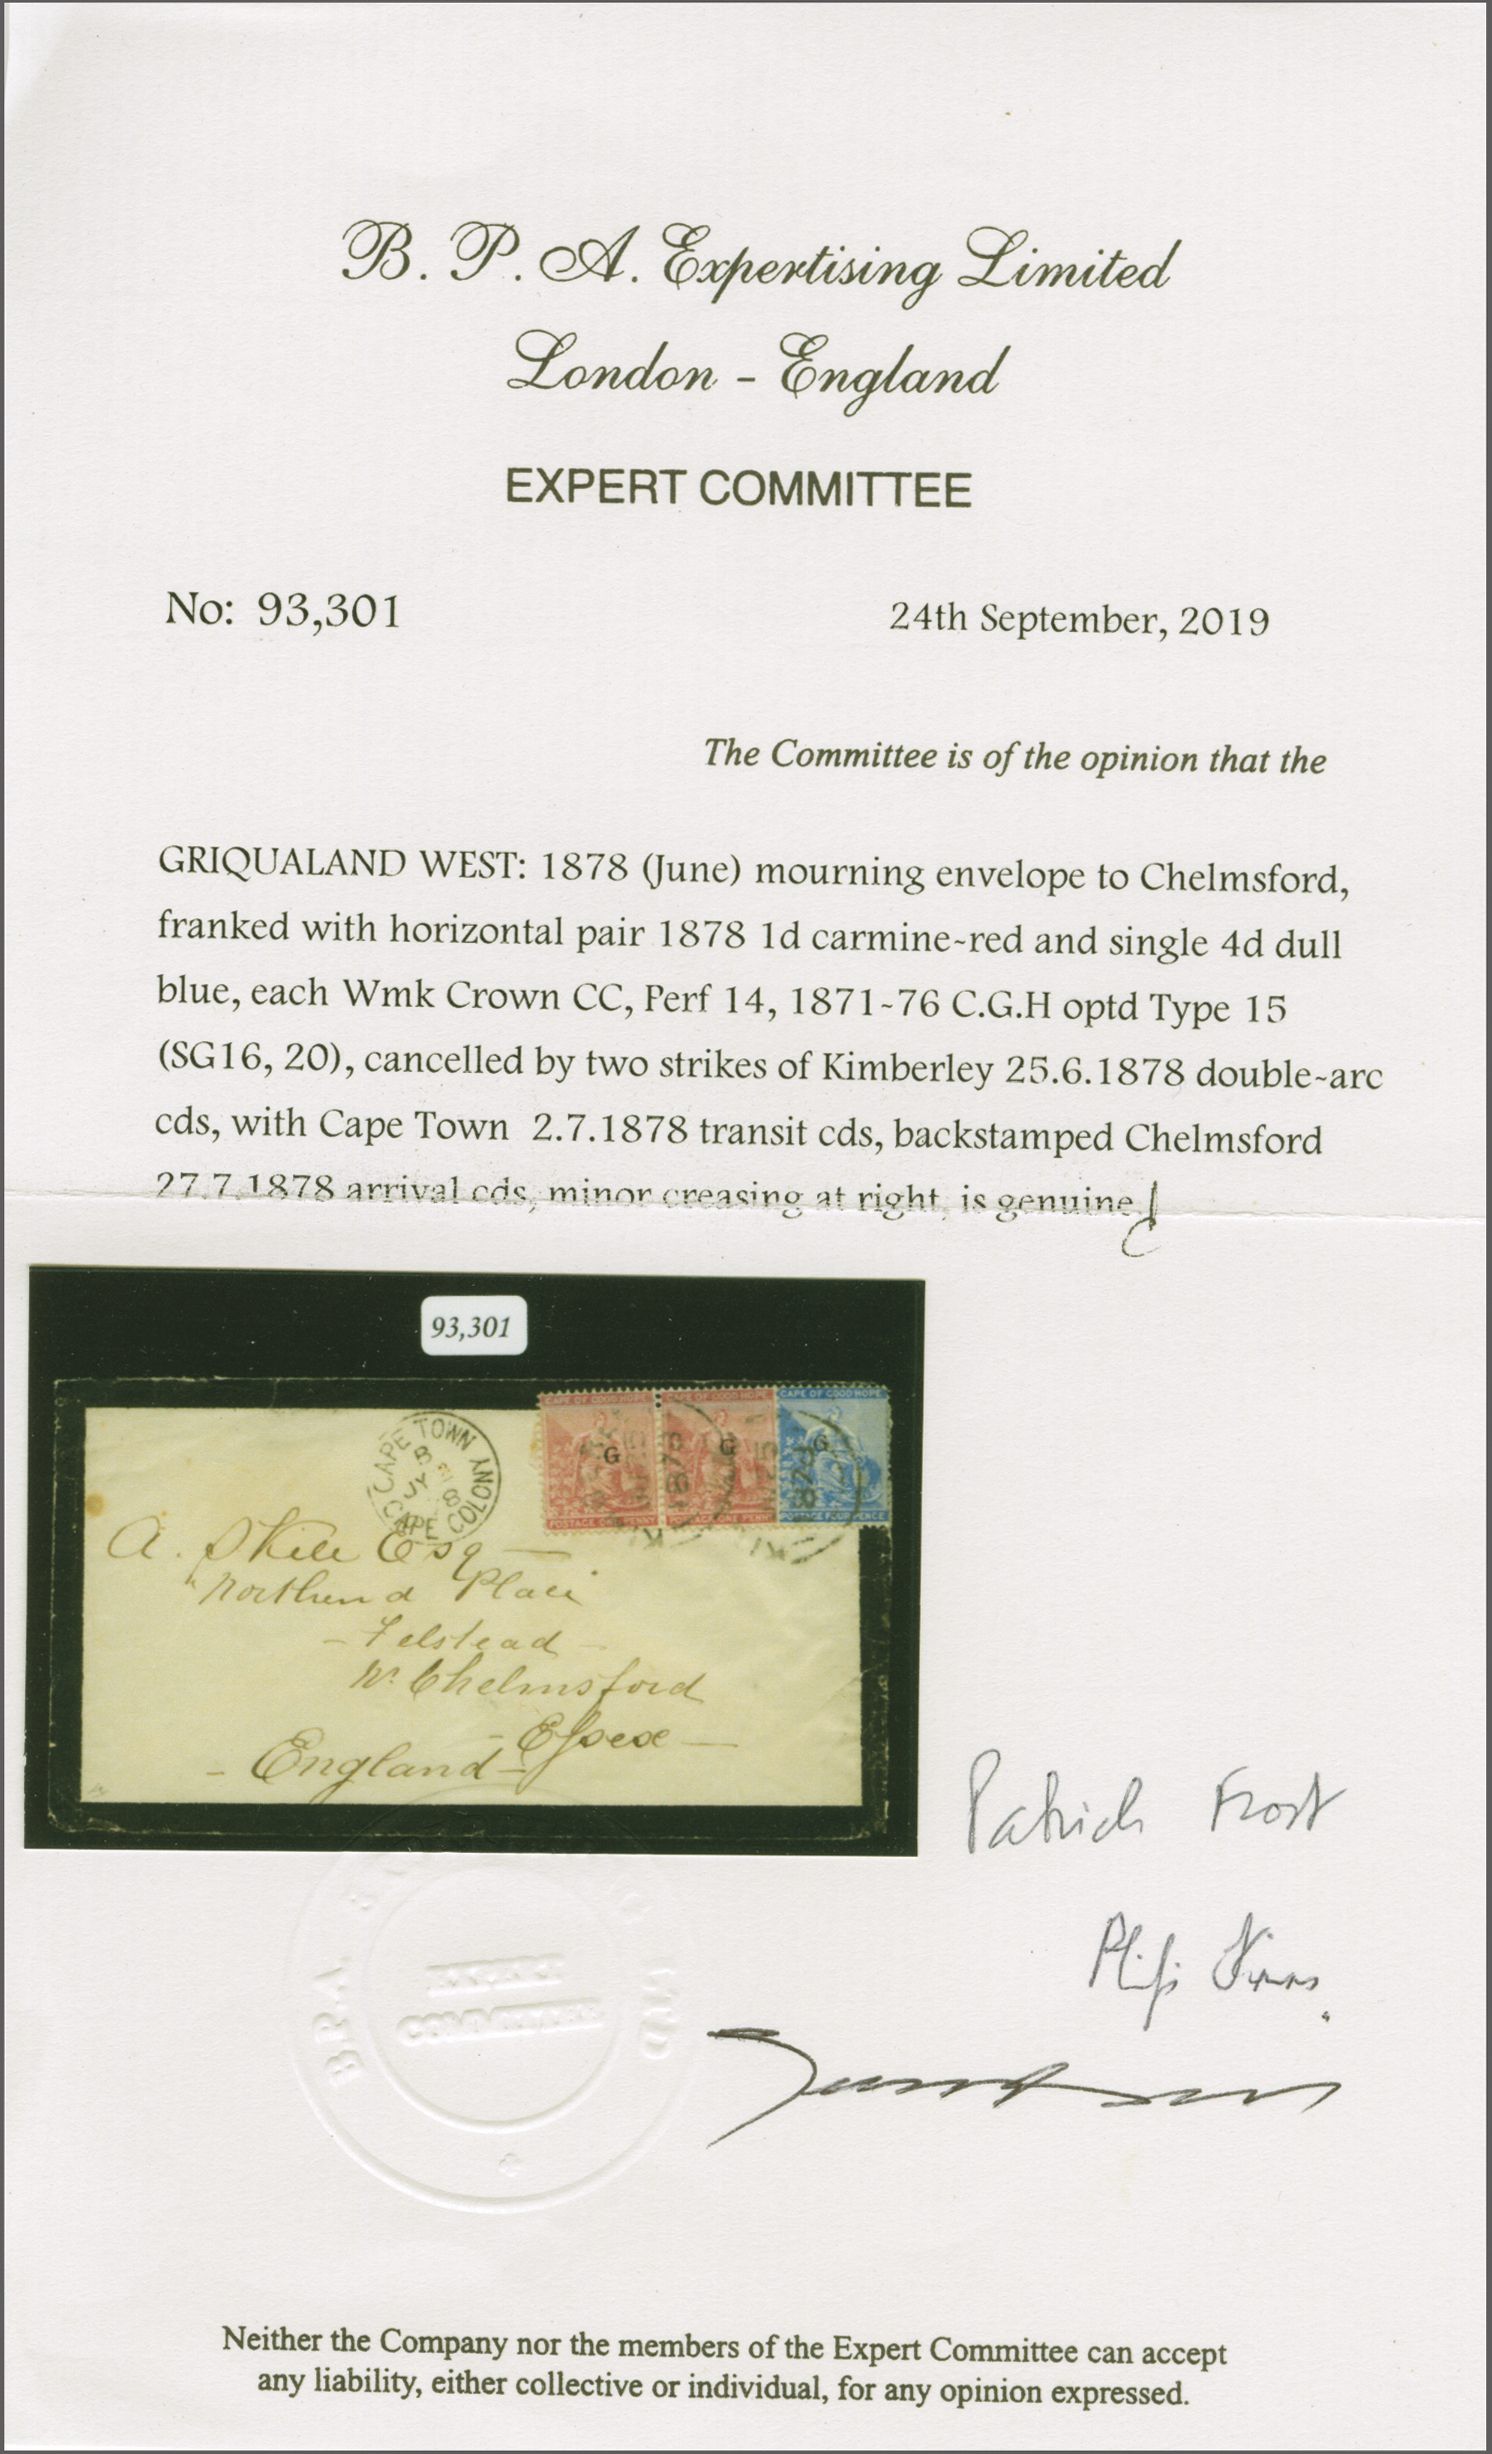 B. P. A. Expertising Limited
London - England
EXPERT COMMITTEE
No: 93,301
24th September, 2019
The Committee is of the opinion that the
GRIQUALAND WEST: 1878 (June) mourning envelope to Chelmsford,
franked with horizontal pair 1878 1d carmine-red and single 4d dull
blue, each Wmk Crown CC, Perf 14, 1871-76 C.G.H optd Type 15
(SG16, 20), cancelled by two strikes of Kimberley 25.6.1878 double-arc
cds, with Cape Town 2.7.1878 transit cds, backstamped Chelmsford
27.7.1878 arrival cds, minor creasing at right, is genuine.
93,301
CAPE OF GOOD HOPE
CAPE OF GOOD HOPE
CAPE OF GOOD HOPE
G
G
G
POSTAGE ONE PENNY
POSTAGE ONE PENNY
POSTAGE FOUR PENCE
CAPE TOWN
CAPE COLONY
A. Esq
Place
Felstead
Nr Chelmsford
Essex
England
Patrick Frost
BPA
LTD
EXPERT
COMMITTEE
Neither the Company nor the members of the Expert Committee can accept
any liability, either collective or individual, for any opinion expressed.